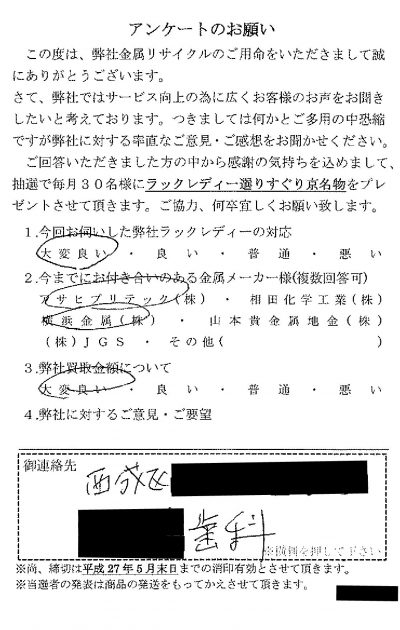 アンケートのお願い
この度は、弊社金属リサイクルのご用命をいただきまして誠
にありがとうございます。
さて、弊社ではサービス向上の為に広くお客様のお声をお聞き
したいと考えております。つきましては何かとご多用の中恐縮
ですが弊社に対する率直なご意見・ご感想をお聞かせください。
ご回答いただきました方の中から感謝の気持ちを込めまして、
抽選で毎月30名様にラックレディー選りすぐり京名物をプレ
ゼントさせて頂きます。ご協力、何卒宜しくお願い致します。
1.今回お伺いした弊社ラックレディーの対応
大変良い・良い・普通・悪い
2.今までにお付き合いのある金属メーカー様(複数回答可)
アサヒプリテック(株)・相田化学工業(株)
横浜金属(株)・山本貴金属地金(株)
(株)JGS・その他( )
3.弊社買取金額について
大変良い・良い・普通・悪い
4.弊社に対するご意見・ご要望
御連絡先
西成区
歯科
※横判を押して下さい
※尚、締切は平成27年5月末日までの消印有効とさせて頂きます。
※当選者の発表は商品の発送をもってかえさせて頂きます。